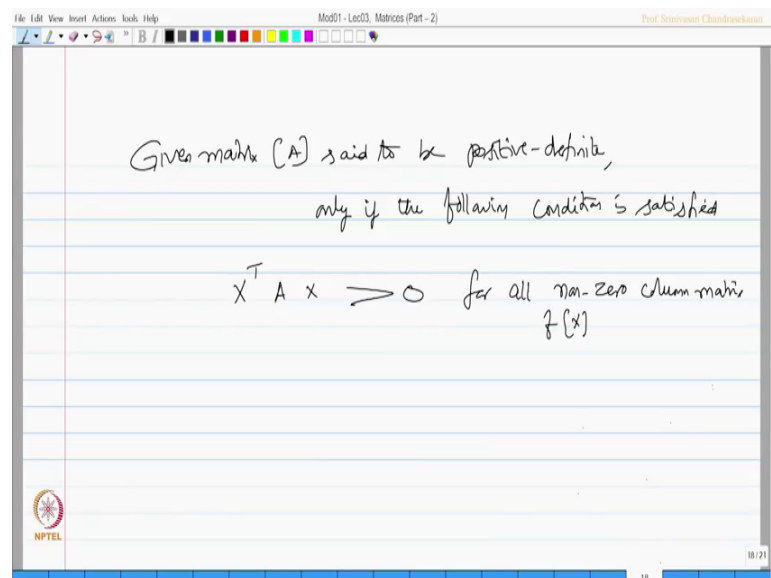 File Edit View Insert Actions Tools Help
Mod01 - Lec03, Matrices (Part - 2)
Prof. Srinivasan Chandrasekaran
B I
Given matrix [A] said to be positive-definite,
only if the following condition is satisfied
X^T A X > 0 for all non-zero column matrix
of [X]
NPTEL
18/21
18